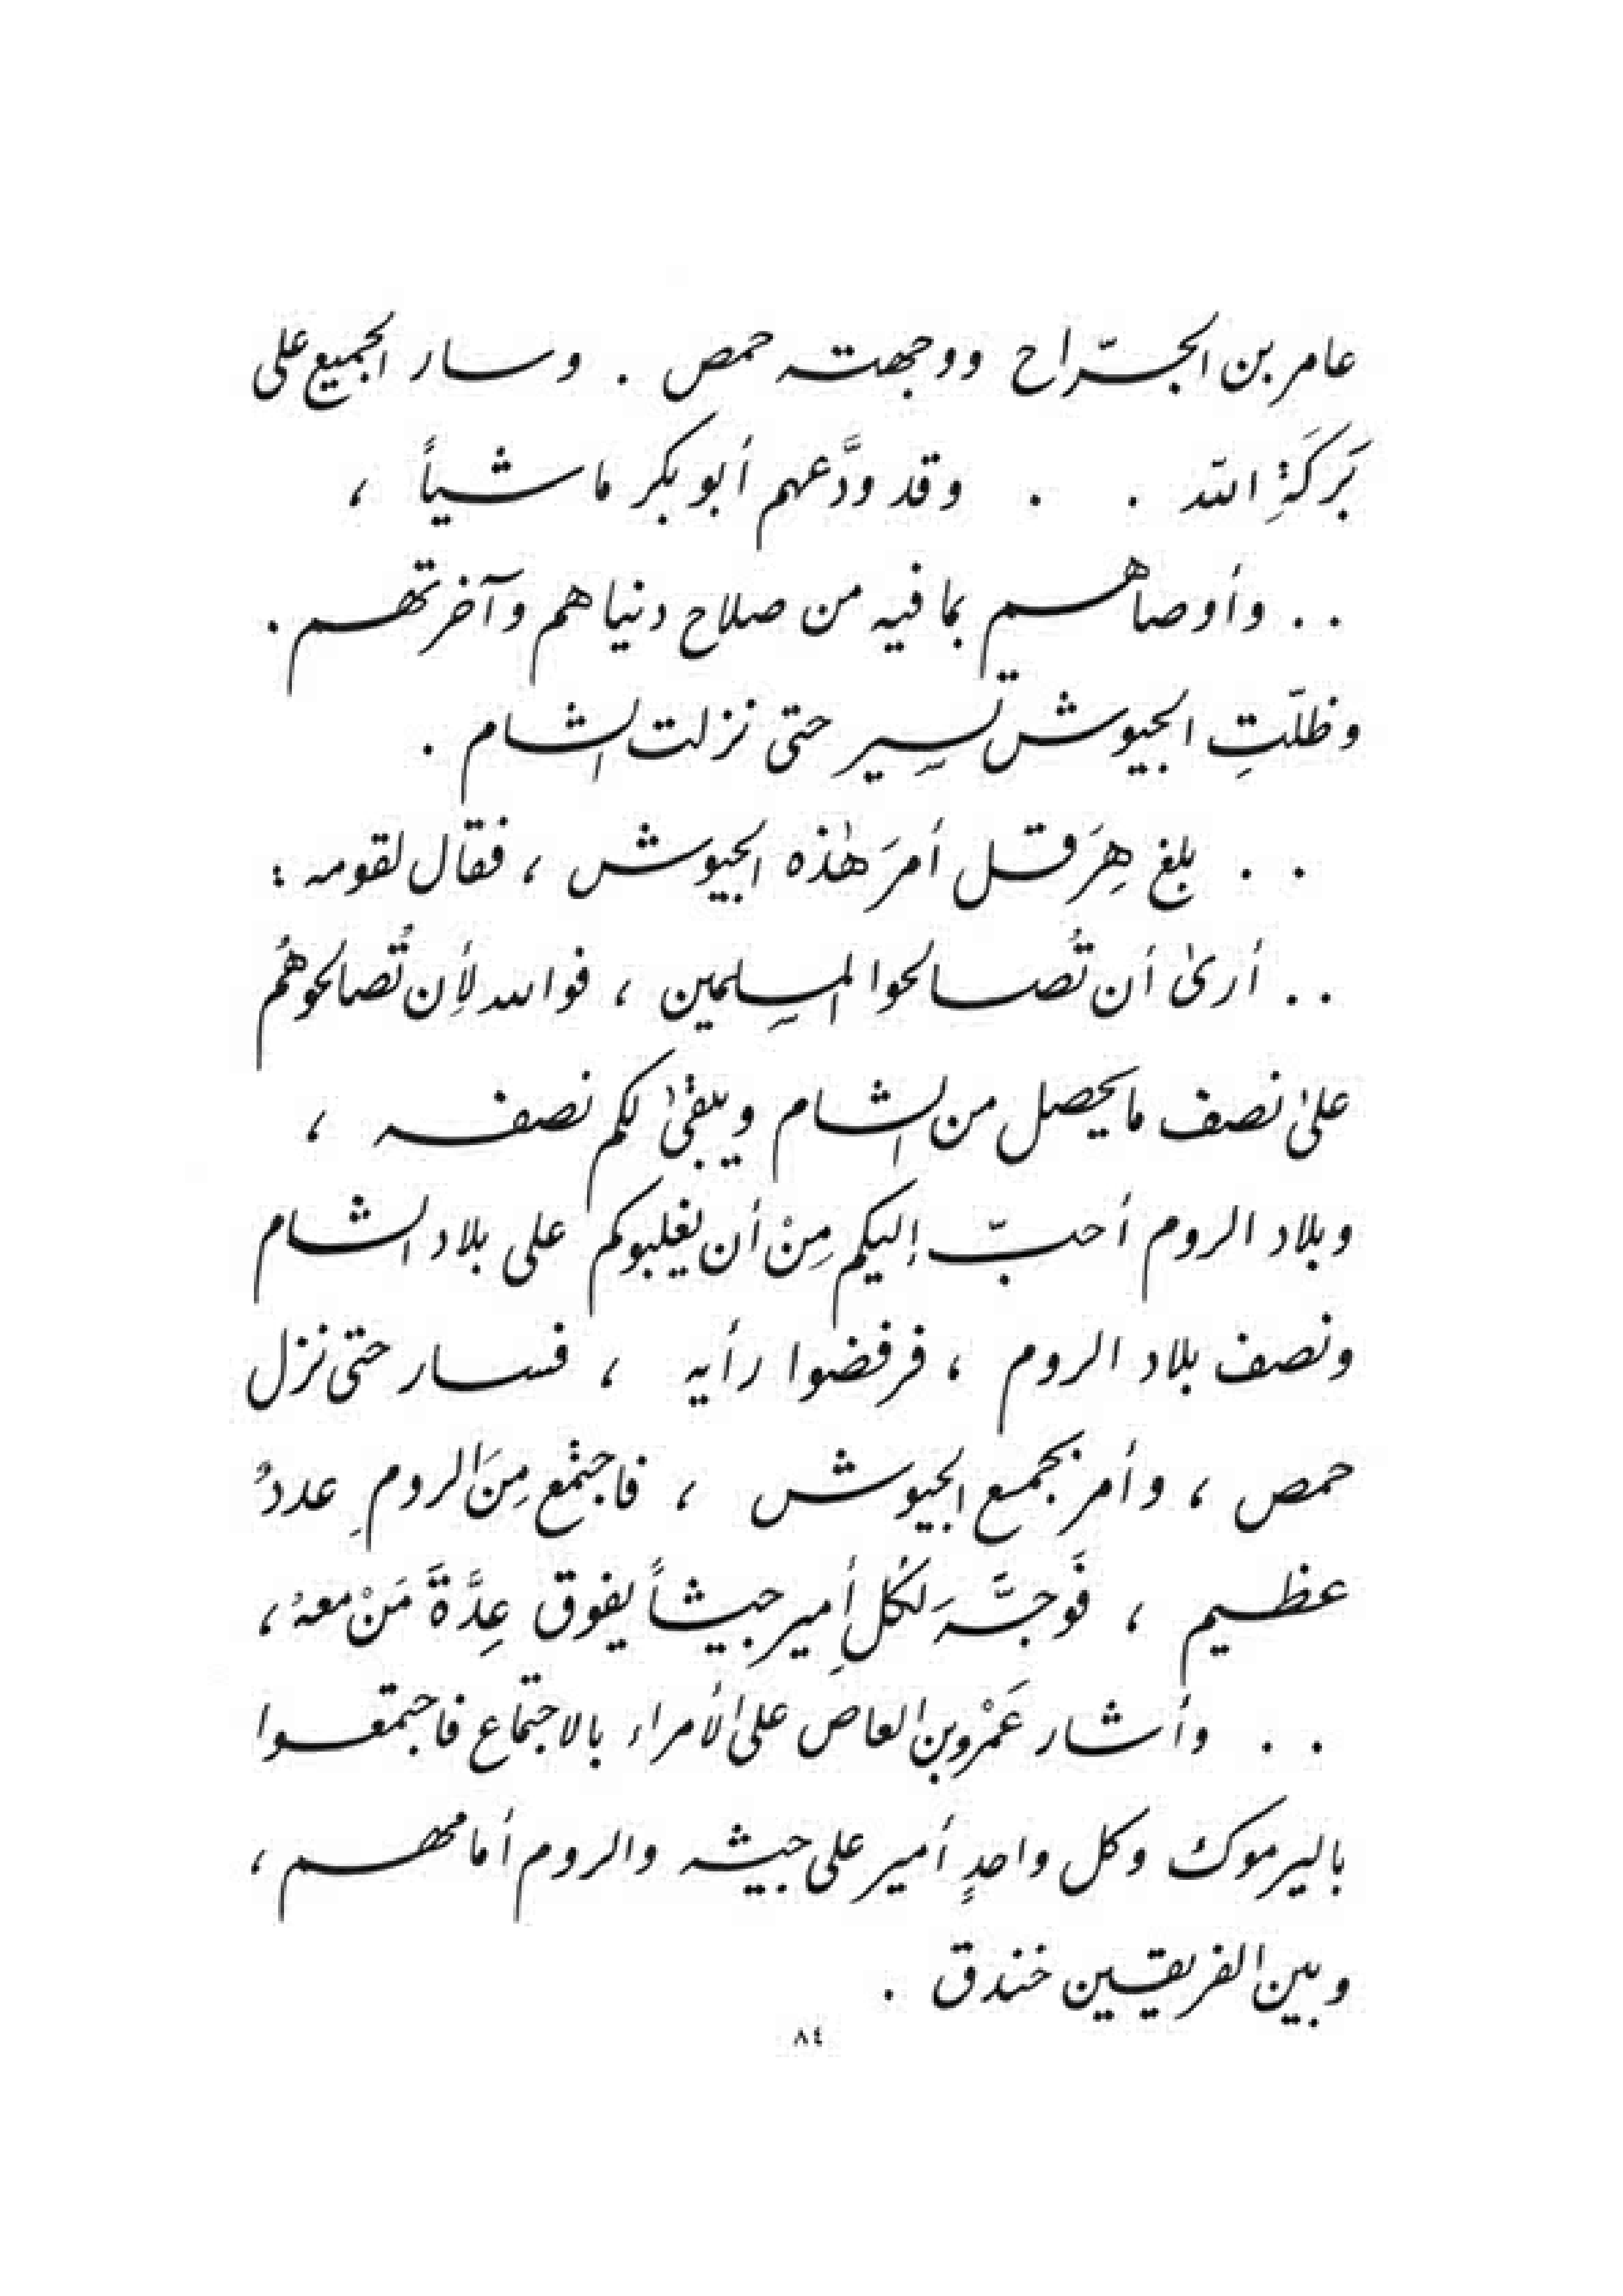 عامر بن الجرّاح ووجهته حمص . وسار الجميع على
بَركَةِ الله . . وقد ودَّعهم أبو بكر ماشياً ،
. . وأوصاهم بما فيه من صلاح دنياهم وآخرتهم .
وظلّتِ الجيوش تسير حتى نزلت الشام .
. . بلغ هِرَقل أمرَ هٰذه الجيوش ، فقال لقومه :
. . أرىٰ أن تُصالحوا المسلمين ، فوالله لأِن تُصالحوهُم
علىٰ نصف ما يحصل من الشام ويبقىٰ لكم نصفه ،
وبلاد الروم أحبّ إليكم مِنْ أن يغلبوكم على بلاد الشام
ونصف بلاد الروم ، فرفضوا رأيه ، فسار حتى نزل
حمص ، وأمر بجمع الجيوش ، فاجتمع مِنَ الرومِ عددُ
عظيم ، فَوجَّهَ لكُل أمِير جيشاً يفوق عِدَّةَ مَنْ معهُ ،
. . وأشار عَمْرو بن العاص على الأمراء بالاجتماع فاجتمعوا
باليرموك وكل واحدٍ أمير على جيشه والروم أمامهم ،
وبين الفريقين خندق .
٨٤